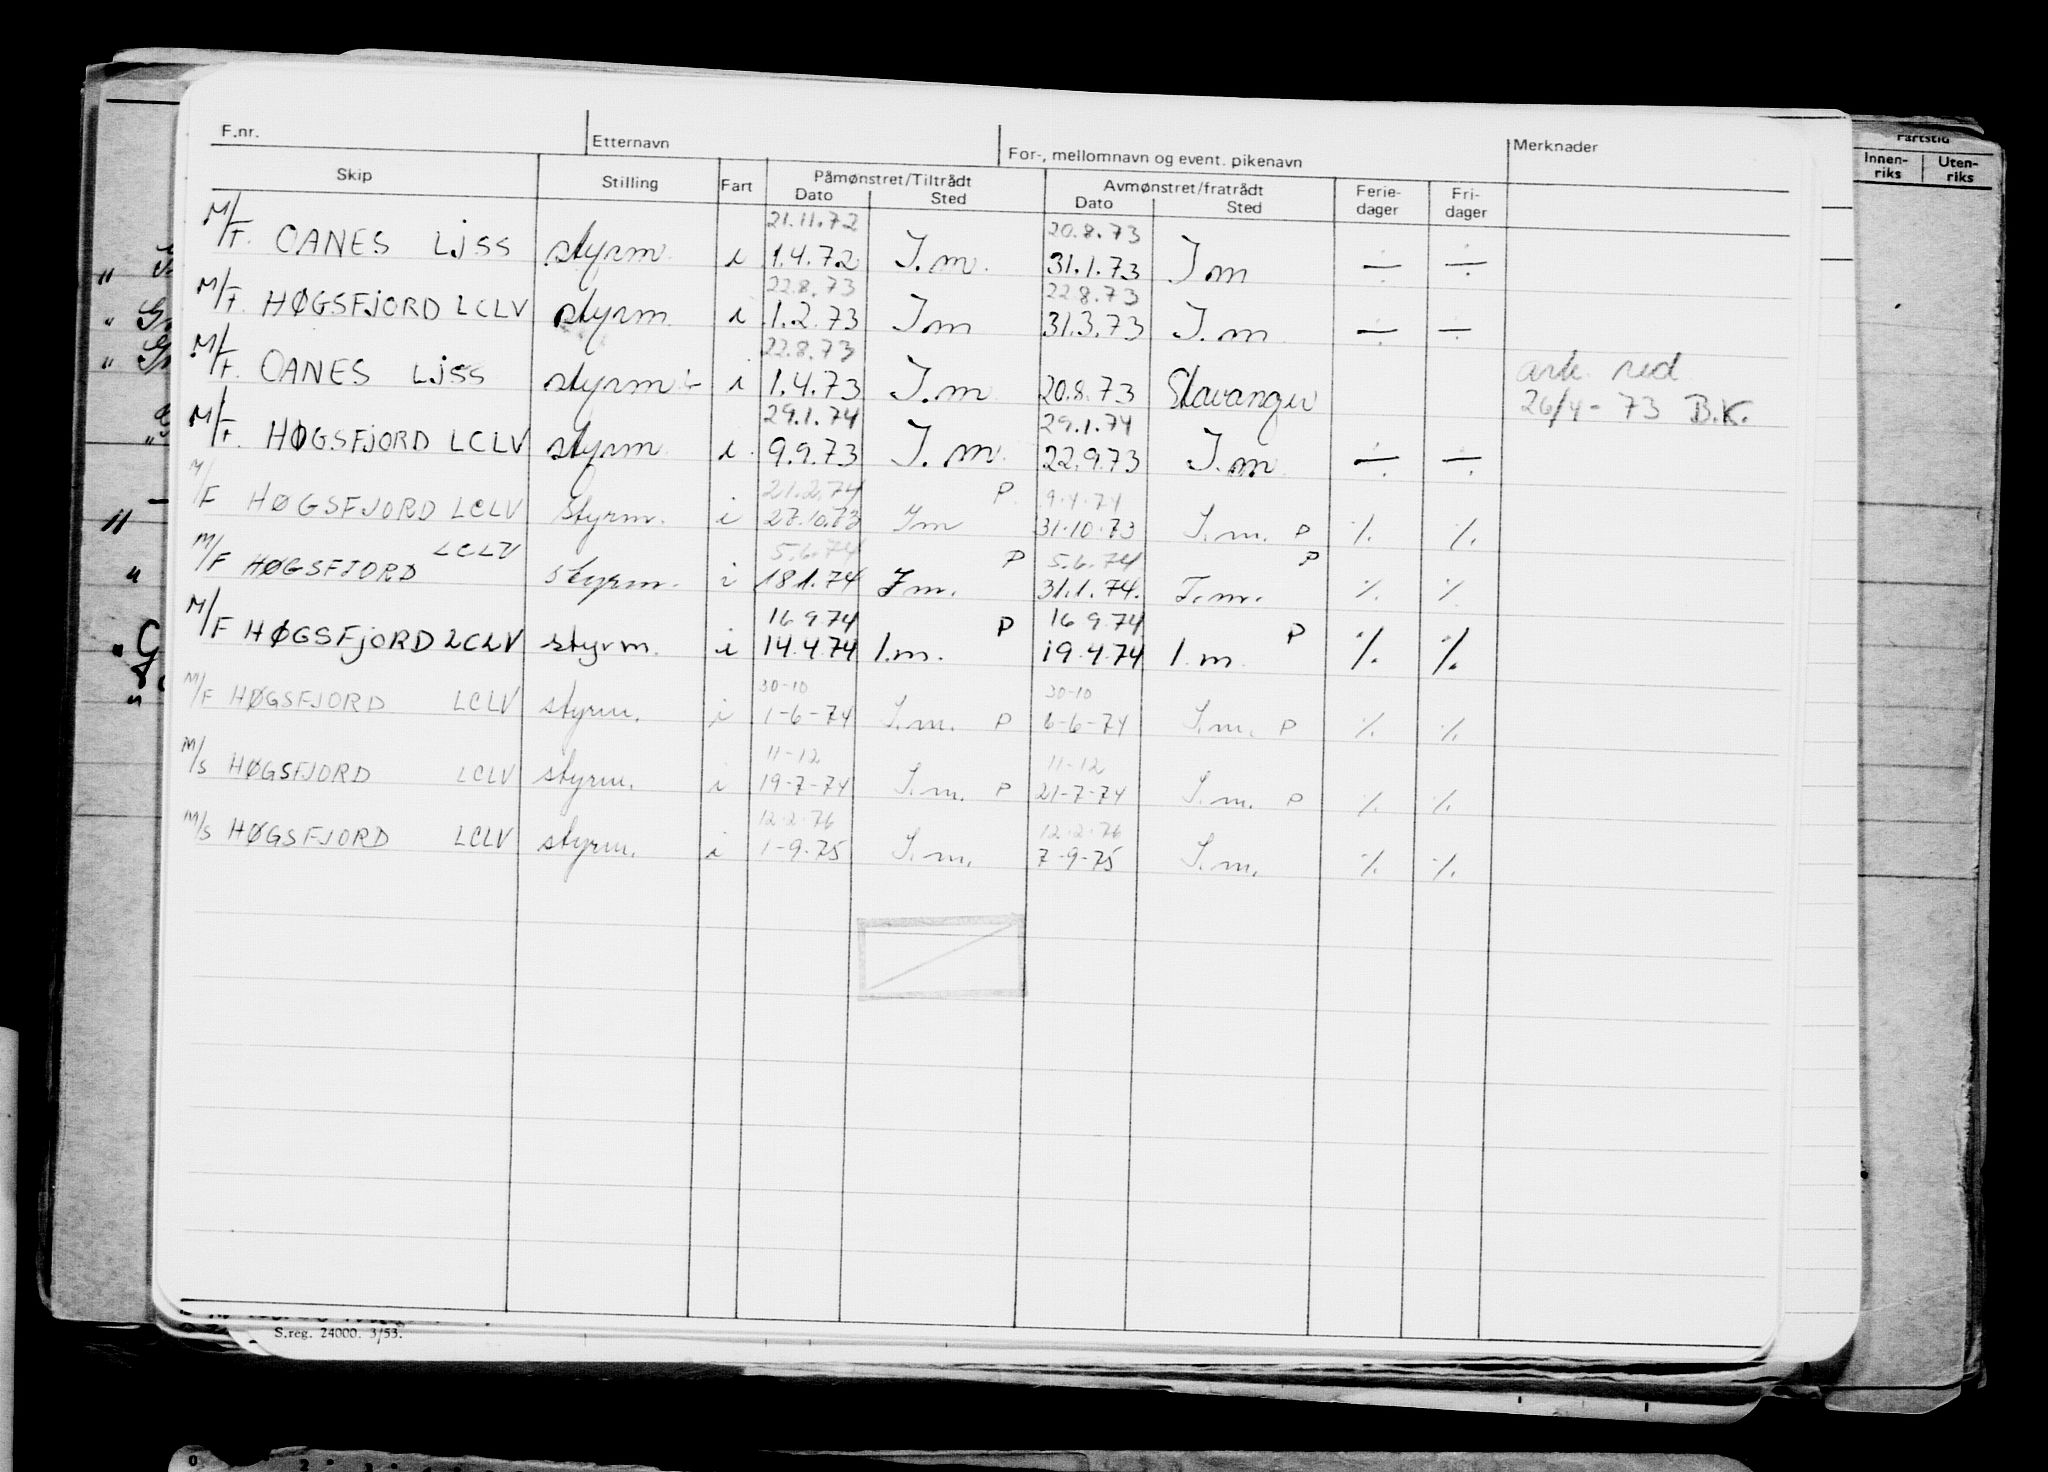 F.nr. Etternavn For-, mellomnavn og event. pikenavn Merknader
Skip Stilling Fart Påmønstret/Tiltrådt Avmønstret/fratrådt Ferie- Fri-
Dato Sted Dato Sted dager dager
Fartstid
Innen- Uten-
riks riks
21.11.72 20.8.73
M/F. OANES LJSS styrm. i 1.4.72 I.m. 31.1.73 I m ÷ ÷
22.8.73 22.8.73
M/F. HØGSFJORD LCLV styrm i 1.2.73 I m 31.3.73 I.m ÷ ÷
22.8.73
M/F. OANES LJSS styrm i 1.4.73 I.m 20.8.73 Stavanger
26/4-73 B.K.
29.1.74 29.1.74
M/F. HØGSFJORD LCLV styrm i. 9.9.73 I.m. 22.9.73 I.m ÷ ÷
21.2.74 P 9.4.74
M/F HØGSFJORD LCLV styrm. i 27.10.73 I m 31.10.73 I.m. P % %
LCLV 5.6.74 P 5.6.74 P
M/F HØGSFJORD styrm. i 18.1.74 I m. 31.1.74. I.m. % %
16 9 74 P 16 9.74 P
M/F HØGSFJORD LCLV styrm. i 14.4.74 I.m. 19.4.74 I.m % %
30-10 30-10
M/F HØGSFJORD LCLV styrm. i 1-6-74 I.m. P 6-6-74 I.m. P % %
11-12 11-12
M/S HØGSFJORD LCLV styrm. i 19-7-74 I.m. P 21-7-74 I.m. P % %
12.2.76 12.2.76
M/S HØGSFJORD LCLV styrm. i 1-9-75 I.m. 7-9-75 I.m. % %
S.reg. 24000. 3/53.